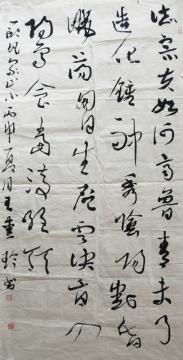 岱宗夫如何齐鲁青未了
造化钟神秀阴阳割昏
晓荡胸生层云决眥入
归鸟会当凌绝顶
一览众山小丙申夏月王